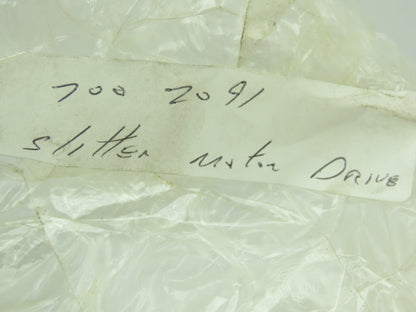 700 2091
Slitter Motor Drive